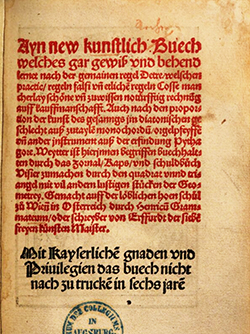 Ayn new kunstlich Buech
welches gar gewiß vnd behend
lernet nach der gemainen regel Detre/welschen
practic/ regeln falsi vñ etliche regeln Cosse man
cherlay schöne vñ zuwissen notürfftig rechnũg
auff kauffmanschafft. Auch nach den propor
tion der kunst des gesanngs jm diatonischen ge
schlecht auß zutaylẽ monochordũ/ orgelpfeyffẽ
vñ ander jnstrument auß der erfindung Pytha
gore. Weytter ist hierjnnen begriffen buechhalt
ten durch das zornal/ Kaps/ vnd schuldbuech
Visier zumachen durch den quadrat vnnd tri
angel mit vil andern lustigen stücken der Geo
metrey. Gemacht auff der löblichen hoen schul
zu Wien in Osterreich durch Henricũ Gram
mateum/ oder schreyber von Erffurdt der siebẽ
freyen künsten Maister.
Mit Kayserlichẽ gnaden vnd
Priuilegien das buech nicht
nach zu truckẽ in sechs jarẽ
COLLEGII
IN
AUGSBURG